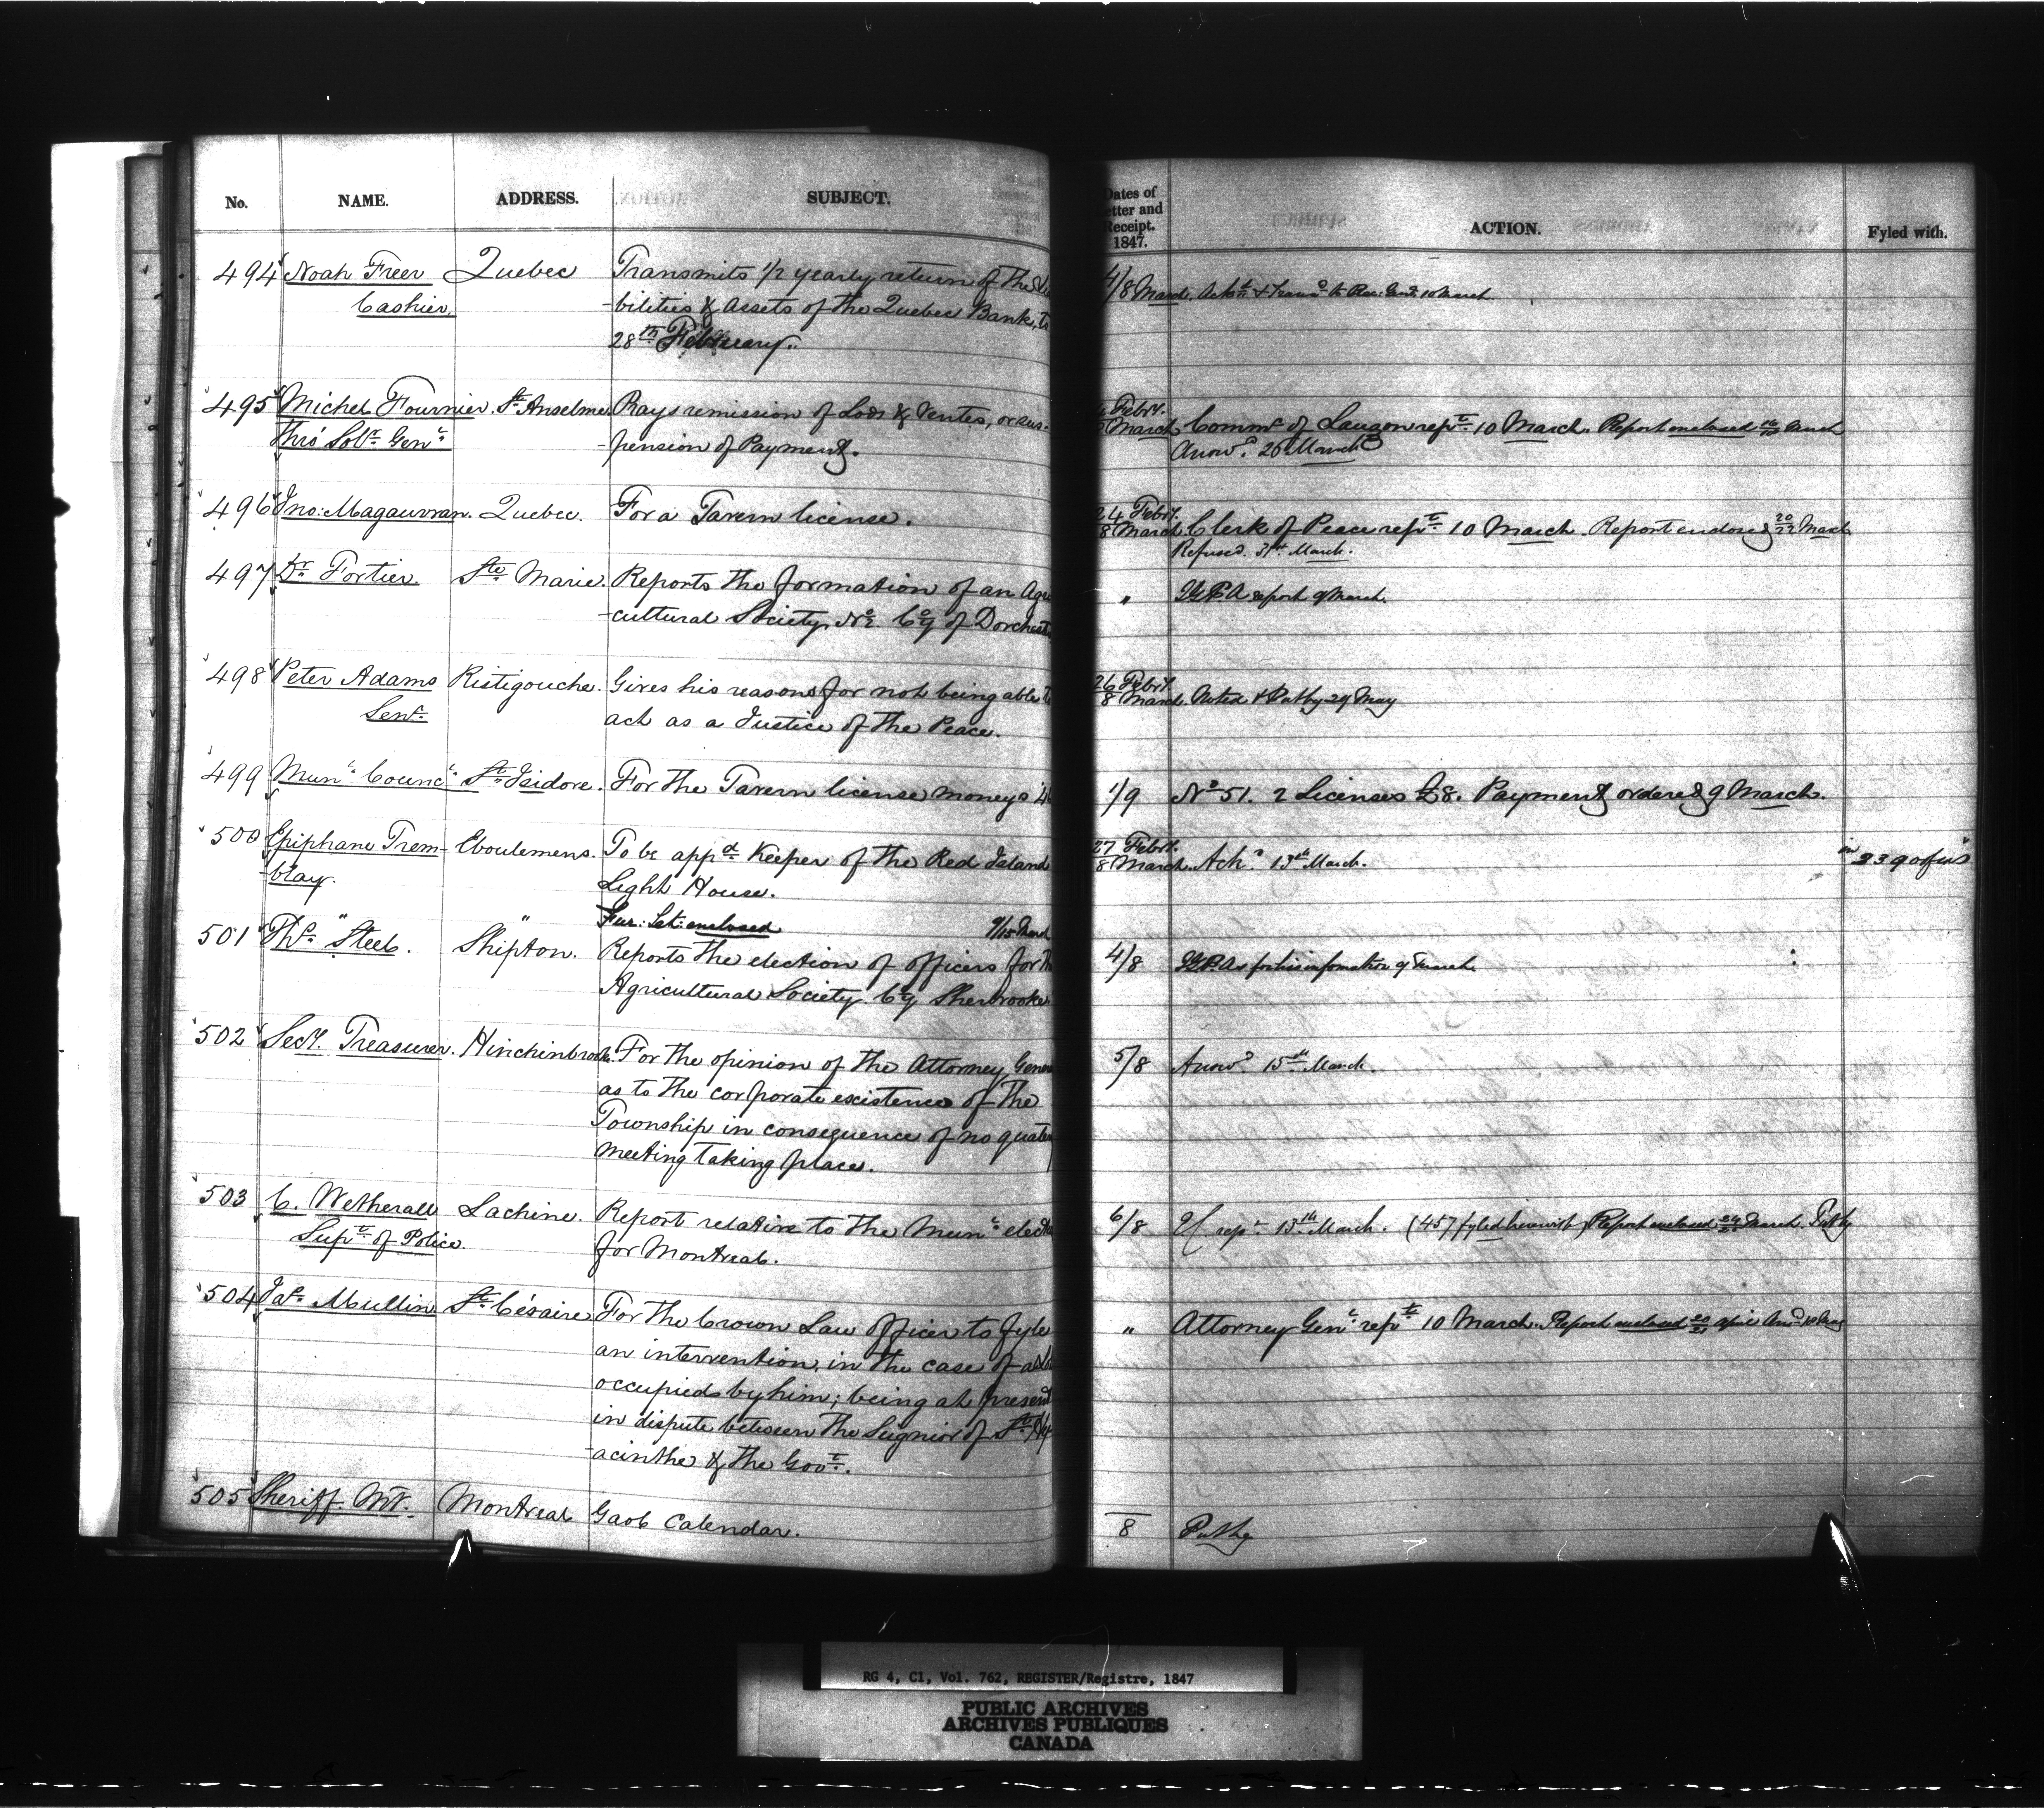 No. NAME. ADDRESS. SUBJECT.
494 Noah Freer Quebec Transmits 1/2 yearly return of the
Cashier. -bilities & Assets of the Quebec Bank, to
28th February.
495 Michel Fournier. St Anselme Prays remission of Lods & Ventes, or sus-
Thro' Solr Genl -pension of Payment.
496 Jno: Magauvran. Quebec. For a Tavern license.
497 Dr Fortier. Ste Marie. Reports the formation of an Agri
-cultural Society No 2. Cy of Dorchest
498 Peter Adams Ristigouche. Gives his reasons for not being able to
Senr. act as a Justice of the Peace.
499 Munl Councl St Isidore. For the Tavern license moneys
500 Epiphane Trem- Eboulemens. To be appd Keeper of the Red Island
-blay. Light House.
" " Fur: Let: enclosed 9/15 March
501 Thos Steel. Shipton. Reports the election of officers for th
Agricultural Society Cy Sherbrooke.
502 Secy. Treasurer. Hinchinbrook. For the opinion of the Attorney Gener
as to the corporate existence of the
Township in consequence of no quater
meeting taking place.
503 C. Wetherall Lachine. Report relative to the Munl elect
Supt of Police. for Montreal.
504 Jas Mullin St Césaire For the Crown Law officer to fyle
an intervention, in the case of a
occupied by him; being at present
in dispute between the Seignior of St Hy
-acinthe & the Govt.
505 Sheriff. Mr. Montreal Gaol Calendar.
Dates of
etter and
Receipt.
1847. ACTION. Fyled with.
4/8 March. Ackd & transd to Rec: Genl 10 March
Febry.
March. Commr of Lauzon rept 10 March. Report enclosed March
Answd 26 March
24 Febry.
8 March. Clerk of Peace rept 10 March. Report endored 20/22 March
Refused. 31st March.
" report 9 March.
26 Febry.
8 March. Noted & Put by 29 May
1/9 No 51. 2 Licenses £8. Payment ordered 9 March.
27 Febry.
8 March. Ackd 13th March. in 2390 of
4/8 for his information 9 March.
5/8 Answd 15th March.
6/8 rept 13th March. (457 fyled herewith) Report enclosed March. Put by
" Attorney Genl rept 10 March. Report enclosed april
8 Put by
RG 4, C1, Vol. 762, REGISTER/Registre, 1847
PUBLIC ARCHIVES
ARCHIVES PUBLIQUES
CANADA